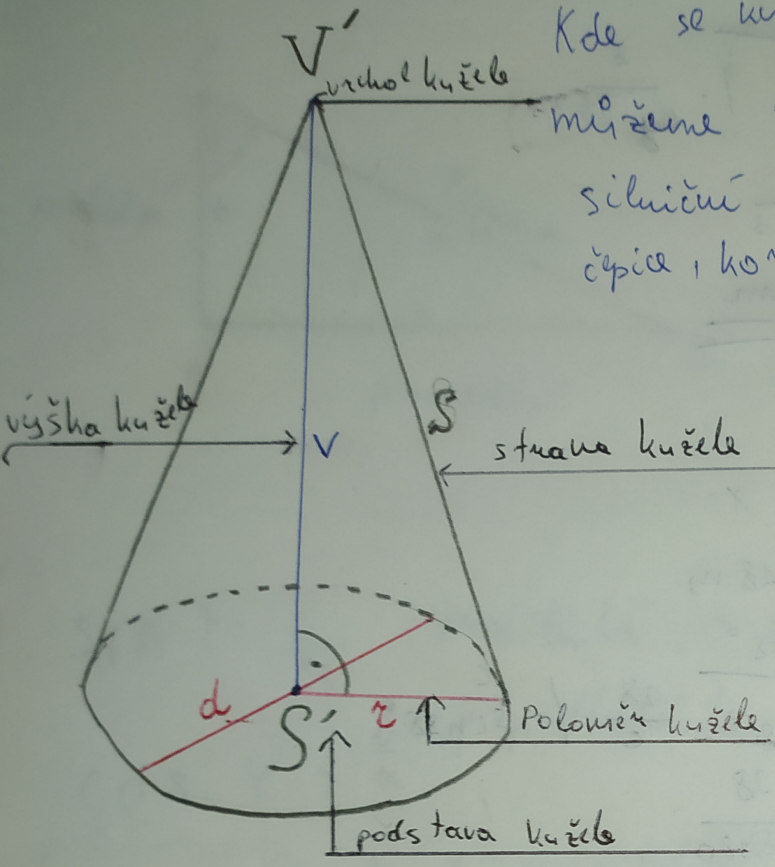 V´
Kde se
vrchol kužele
můžeme
silniční
čepice,
výška kužele
v
s
strana kužele
d
S´
r
Poloměr kužele
podstava kužele